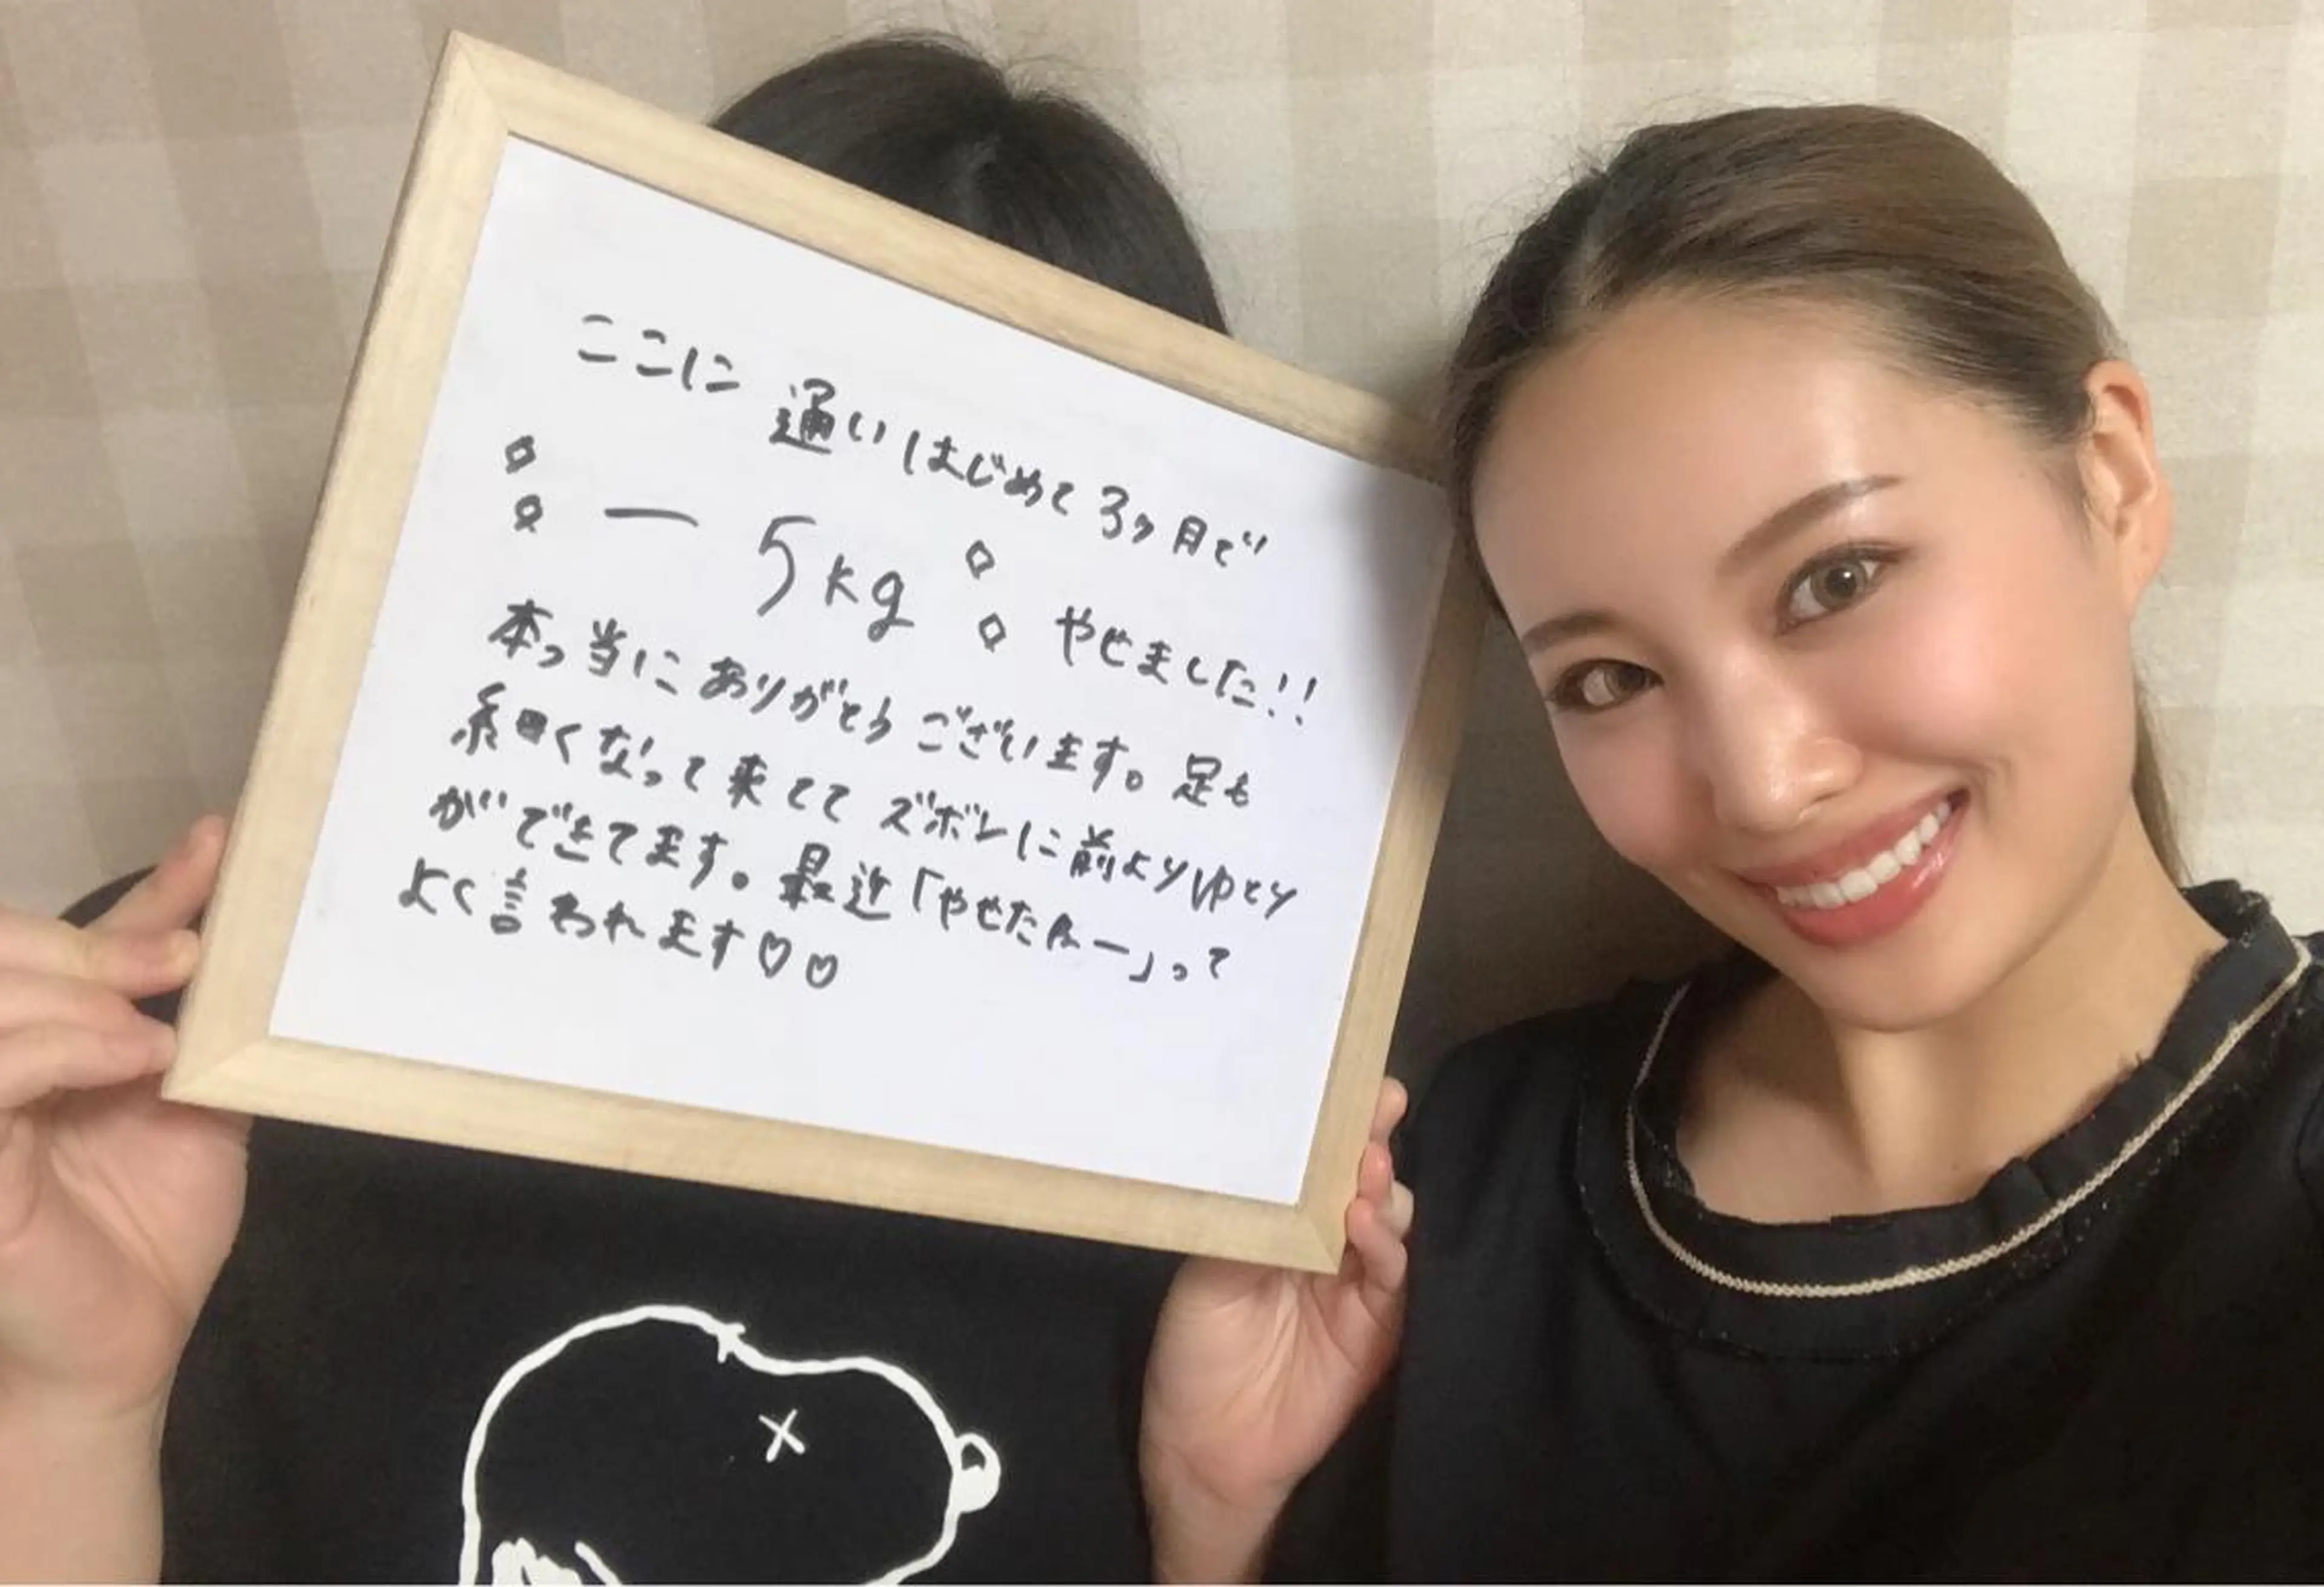 ここに 通いはじめて 3ヶ月で
－5kg やせました!!
本っ当に ありがとう ございます。足も
細くなって来てて ズボンに前よりゆとり
ができてます。最近「やせたねー」って
よく言われます♡♡